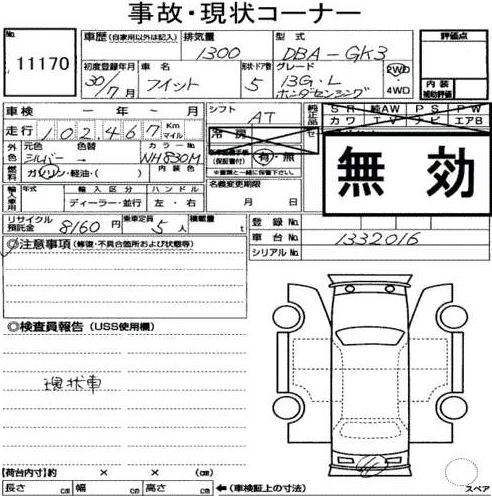 事故・現状コーナー
No. 11170
車歴 (自家用以外は記入) 排気量 1300 型式 DBA-GK3 評価点
初度登録年月 30/7月 車名 フィット 形状・ドア数 5 グレード 13G・L ホンダセンシング 2WD 4WD 内装 補助評価
車検 ー 年 ー 月 シフト AT 純正品 SR 純AW PS PW
走行 102,467 Km マイル 冷房 カワ TV ナビ エアB
外色 元色 シルバー 色替 → カラーNo. NH830M (保証書付) 有・無
燃料 ガソリン・軽油・( ) 内装色 ※書類と一緒に保管下さい。
無効
輸入車用 年式 輸入区分 ハンドル 名義変更期限
ディーラー・並行 左・右 月 日
リサイクル預託金 8160円 乗車定員 5人 積載量 t 登録No.
◎注意事項 (修復・不具合箇所および状態等) 車台No. 1332016
シリアルNo.
◎検査員報告 (USS使用欄)
現状車
【荷台内寸】約 × × (cm)
長さ cm 幅 cm 高さ cm ←(車検証上の寸法) スペア